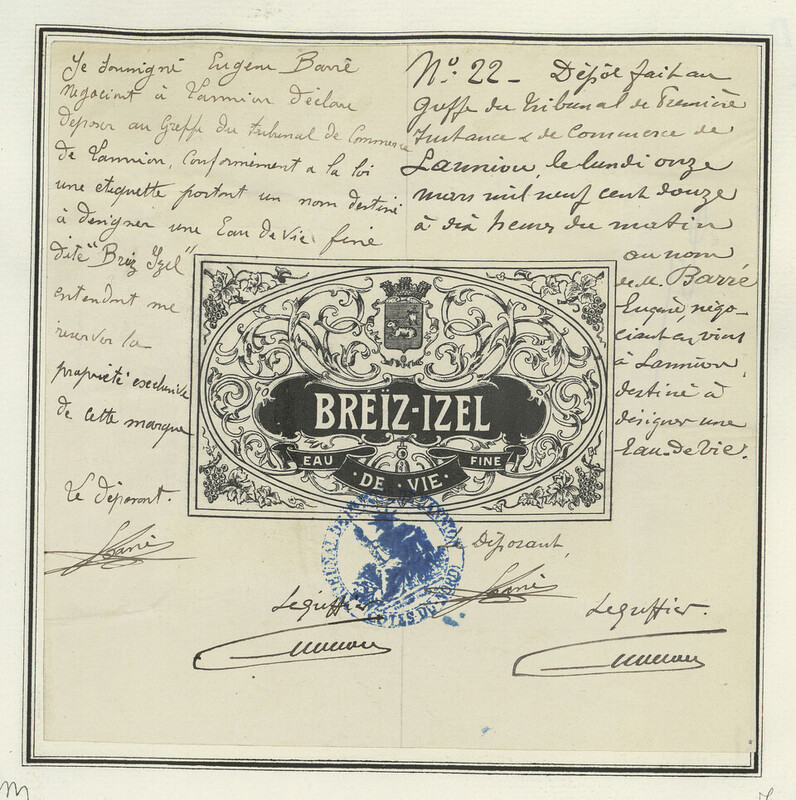 Je soussigné Eugène Barré
négociant à Lannion déclare
déposer au Greffe du tribunal de Commerce
de Lannion, conformément à la loi
une étiquette portant un nom destiné
à désigner une Eau de Vie fine
dite "Breiz Izel"
entendant me
réserver la
propriété exclusive
de cette marque
Le déposant.
Barré
No. 22 - Dépôt fait au
Greffe du Tribunal de Première
Instance & de Commerce de
Lannion, le lundi onze
mars mil neuf cent douze
à dix heures du matin
au nom
de M. Barré
Eugène, négo-
ciant en vins
à Lannion,
destiné à
désigner une
Eau-de-Vie.
BRÉÏZ-IZEL
EAU
·DE·VIE·
FINE
Le Déposant,
Barré
Le greffier
Le greffier.